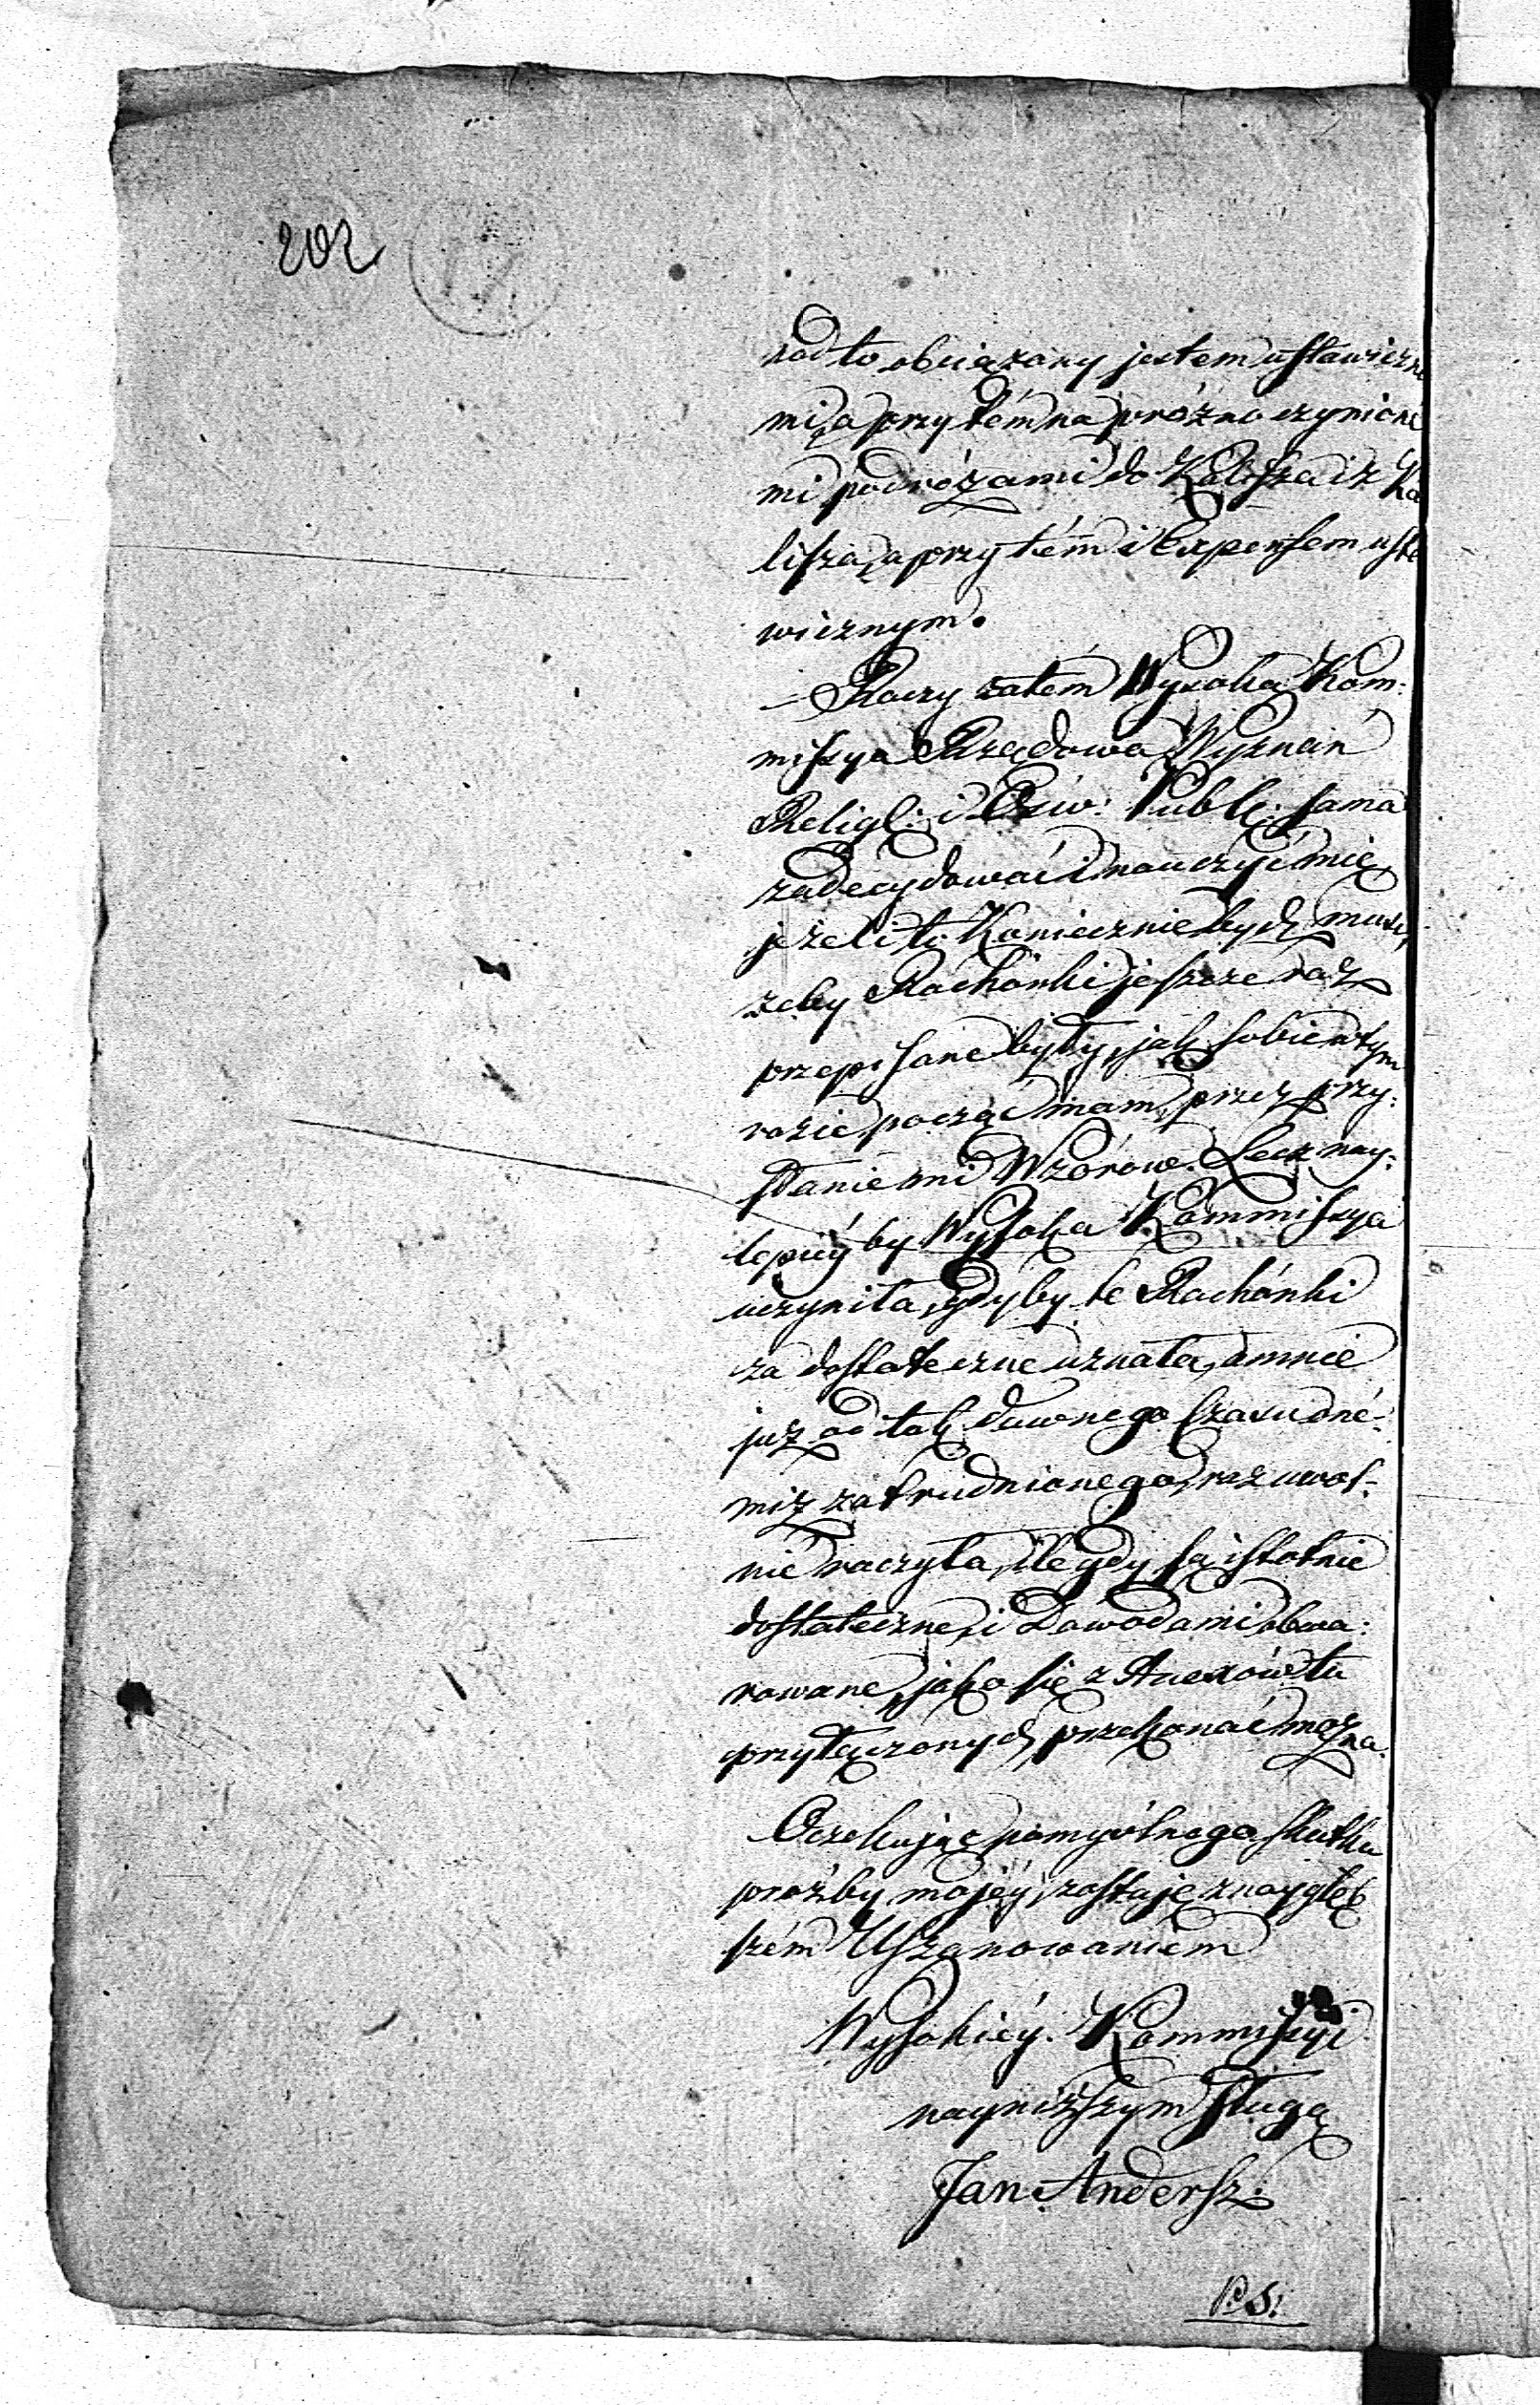 202
nadto obciążony jestem ustawiczne
mi, a przytém na próżno czynione
mi podróżami do Kalisza i z Ka
lisza, a przytém i Expensem usta
wicznym.
Raczy zatém Wysoka Kom:
missya Rządowa Wyznań
Religi: i Ośw: Publ: sama
zadecydować i nauczyć mię,
jeżeli to Koniecznie bydź musi,
żeby Rachónki jeszcze raz
przepisane były, jak sobie w tym
razie począć mam, przez przy:
słanie mi Wzorów. Lecz nay:
lepiéy by Wysoka Kommissya
uczyniła, gdyby te Rachónki
za dostateczne uznała, a mnie
już od tak dawnego Czasu dné:
miż zatrudnionego, raz uwol:
nić raczyła, ile gdy są istotnie
dostateczne, i Dowodami obwa:
rowane, jako się z Anexów tu
przyłączonych przekonać można.
Oczekując pomyślnego skutku
prożby mojéy, zostaję z naygłęb
szém Uszanowaniem
Wysokiéy Kommissyi
nayniższym sługą
Jan Andersz.
P.S: